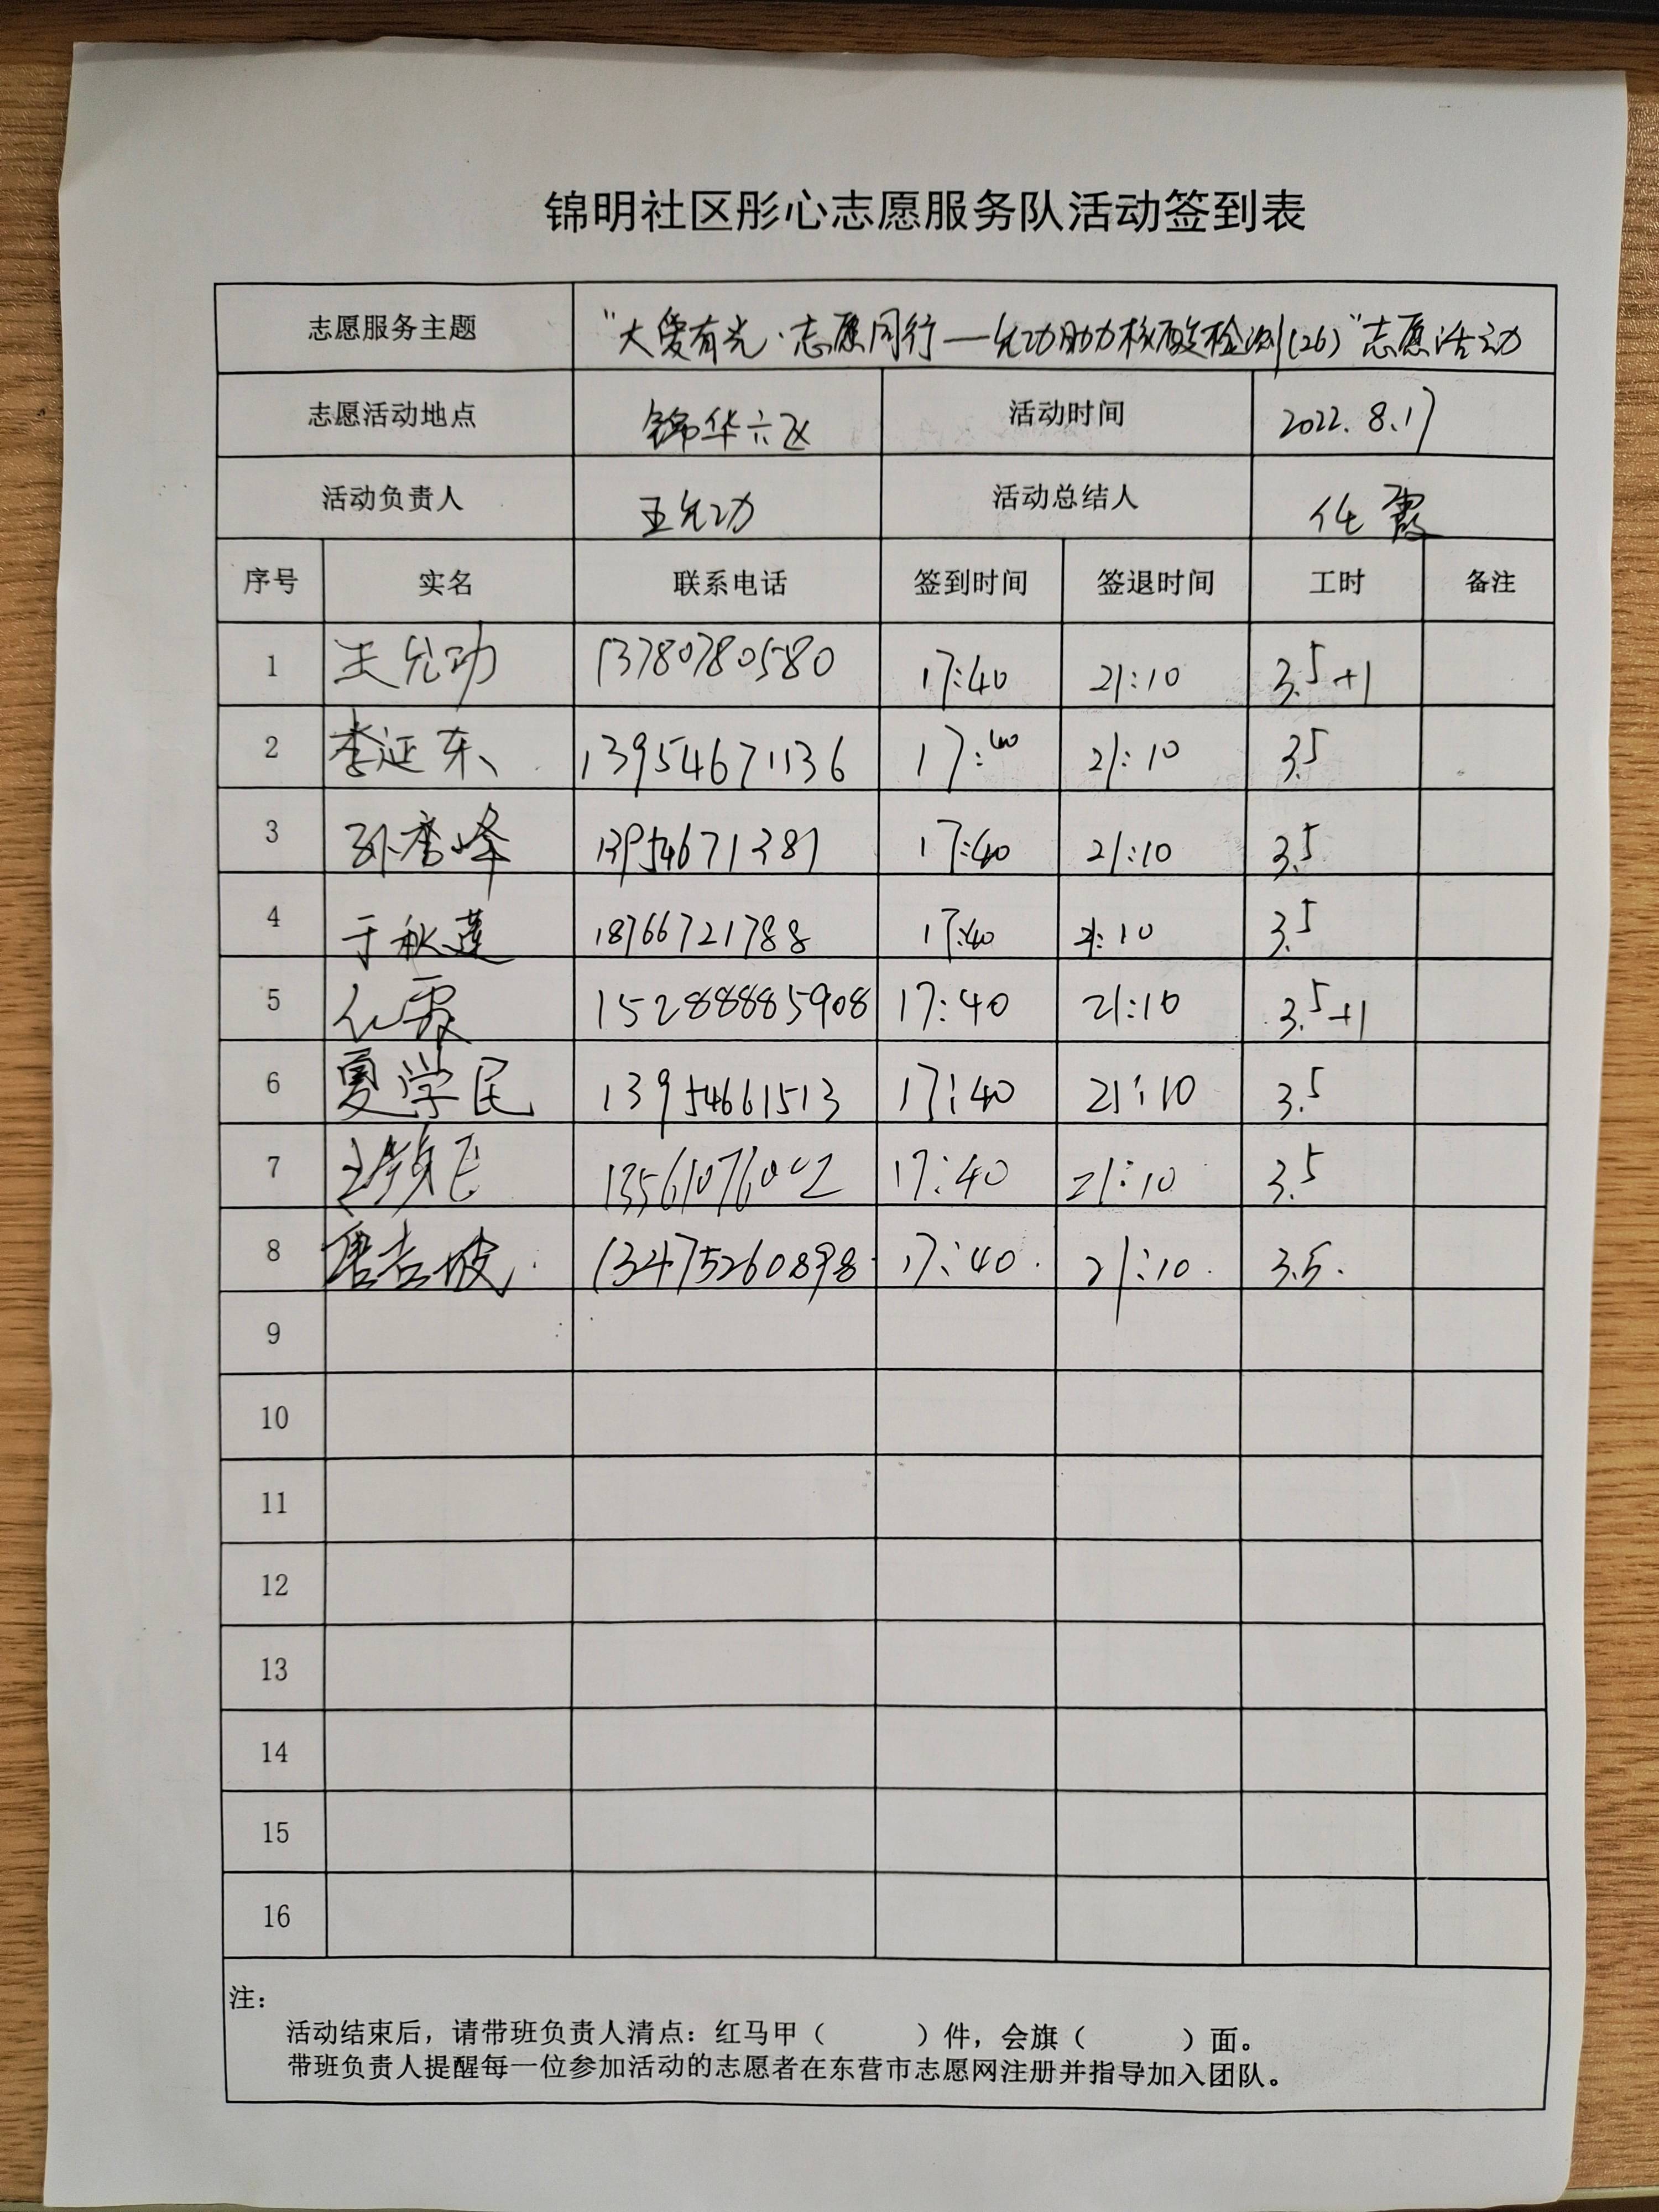 锦明社区彤心志愿服务队活动签到表
志愿服务主题 "大爱有光·志愿同行—允功助力核酸检测(26)"志愿活动
志愿活动地点 锦华六区 活动时间 2022.8.17
活动负责人 王允功 活动总结人 任霞
序号 实名 联系电话 签到时间 签退时间 工时 备注
1 王允功 13780780580 17:40 21:10 3.5+1
2 李延东 13954671136 17:40 21:10 3.5
3 孙秀峰 13954671381 17:40 21:10 3.5
4 于秋莲 18766721788 17:40 21:10 3.5
5 任霞 15288885908 17:40 21:10 3.5+1
6 夏学民 13954661513 17:40 21:10 3.5
7 17:40 21:10 3.5
8 唐吉坡 13475260898 17:40 21:10 3.5
9
10
11
12
13
14
15
16
注：
活动结束后，请带班负责人清点：红马甲（ ）件，会旗（ ）面。
带班负责人提醒每一位参加活动的志愿者在东营市志愿网注册并指导加入团队。